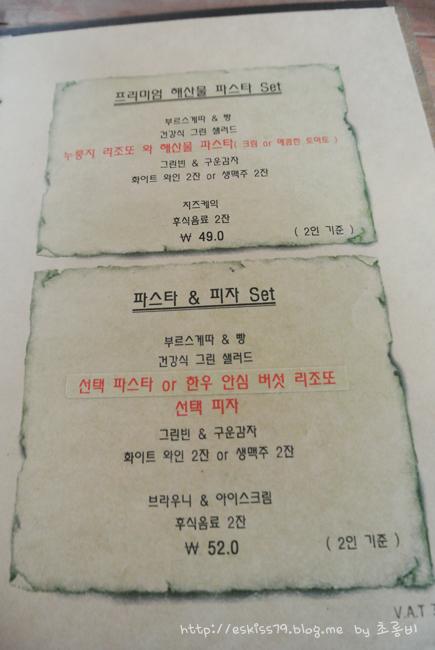 프리미엄 해산물 파스타 Set
부르스게따 & 빵
건강식 그린 샐러드
누룽지 리조또 와 해산물 파스타( 크림 or 매콤한 토마토 )
그린빈 & 구운감자
화이트 와인 2잔 or 생맥주 2잔
치즈케익
후식음료 2잔
₩ 49.0 ( 2인 기준 )
파스타 & 피자 Set
부르스게따 & 빵
건강식 그린 샐러드
선택 파스타 or 한우 안심 버섯 리조또
선택 피자
그린빈 & 구운감자
화이트 와인 2잔 or 생맥주 2잔
브라우니 & 아이스크림
후식음료 2잔
₩ 52.0 ( 2인 기준 )
V.A.T
http://eskiss79.blog.me by 초롱비